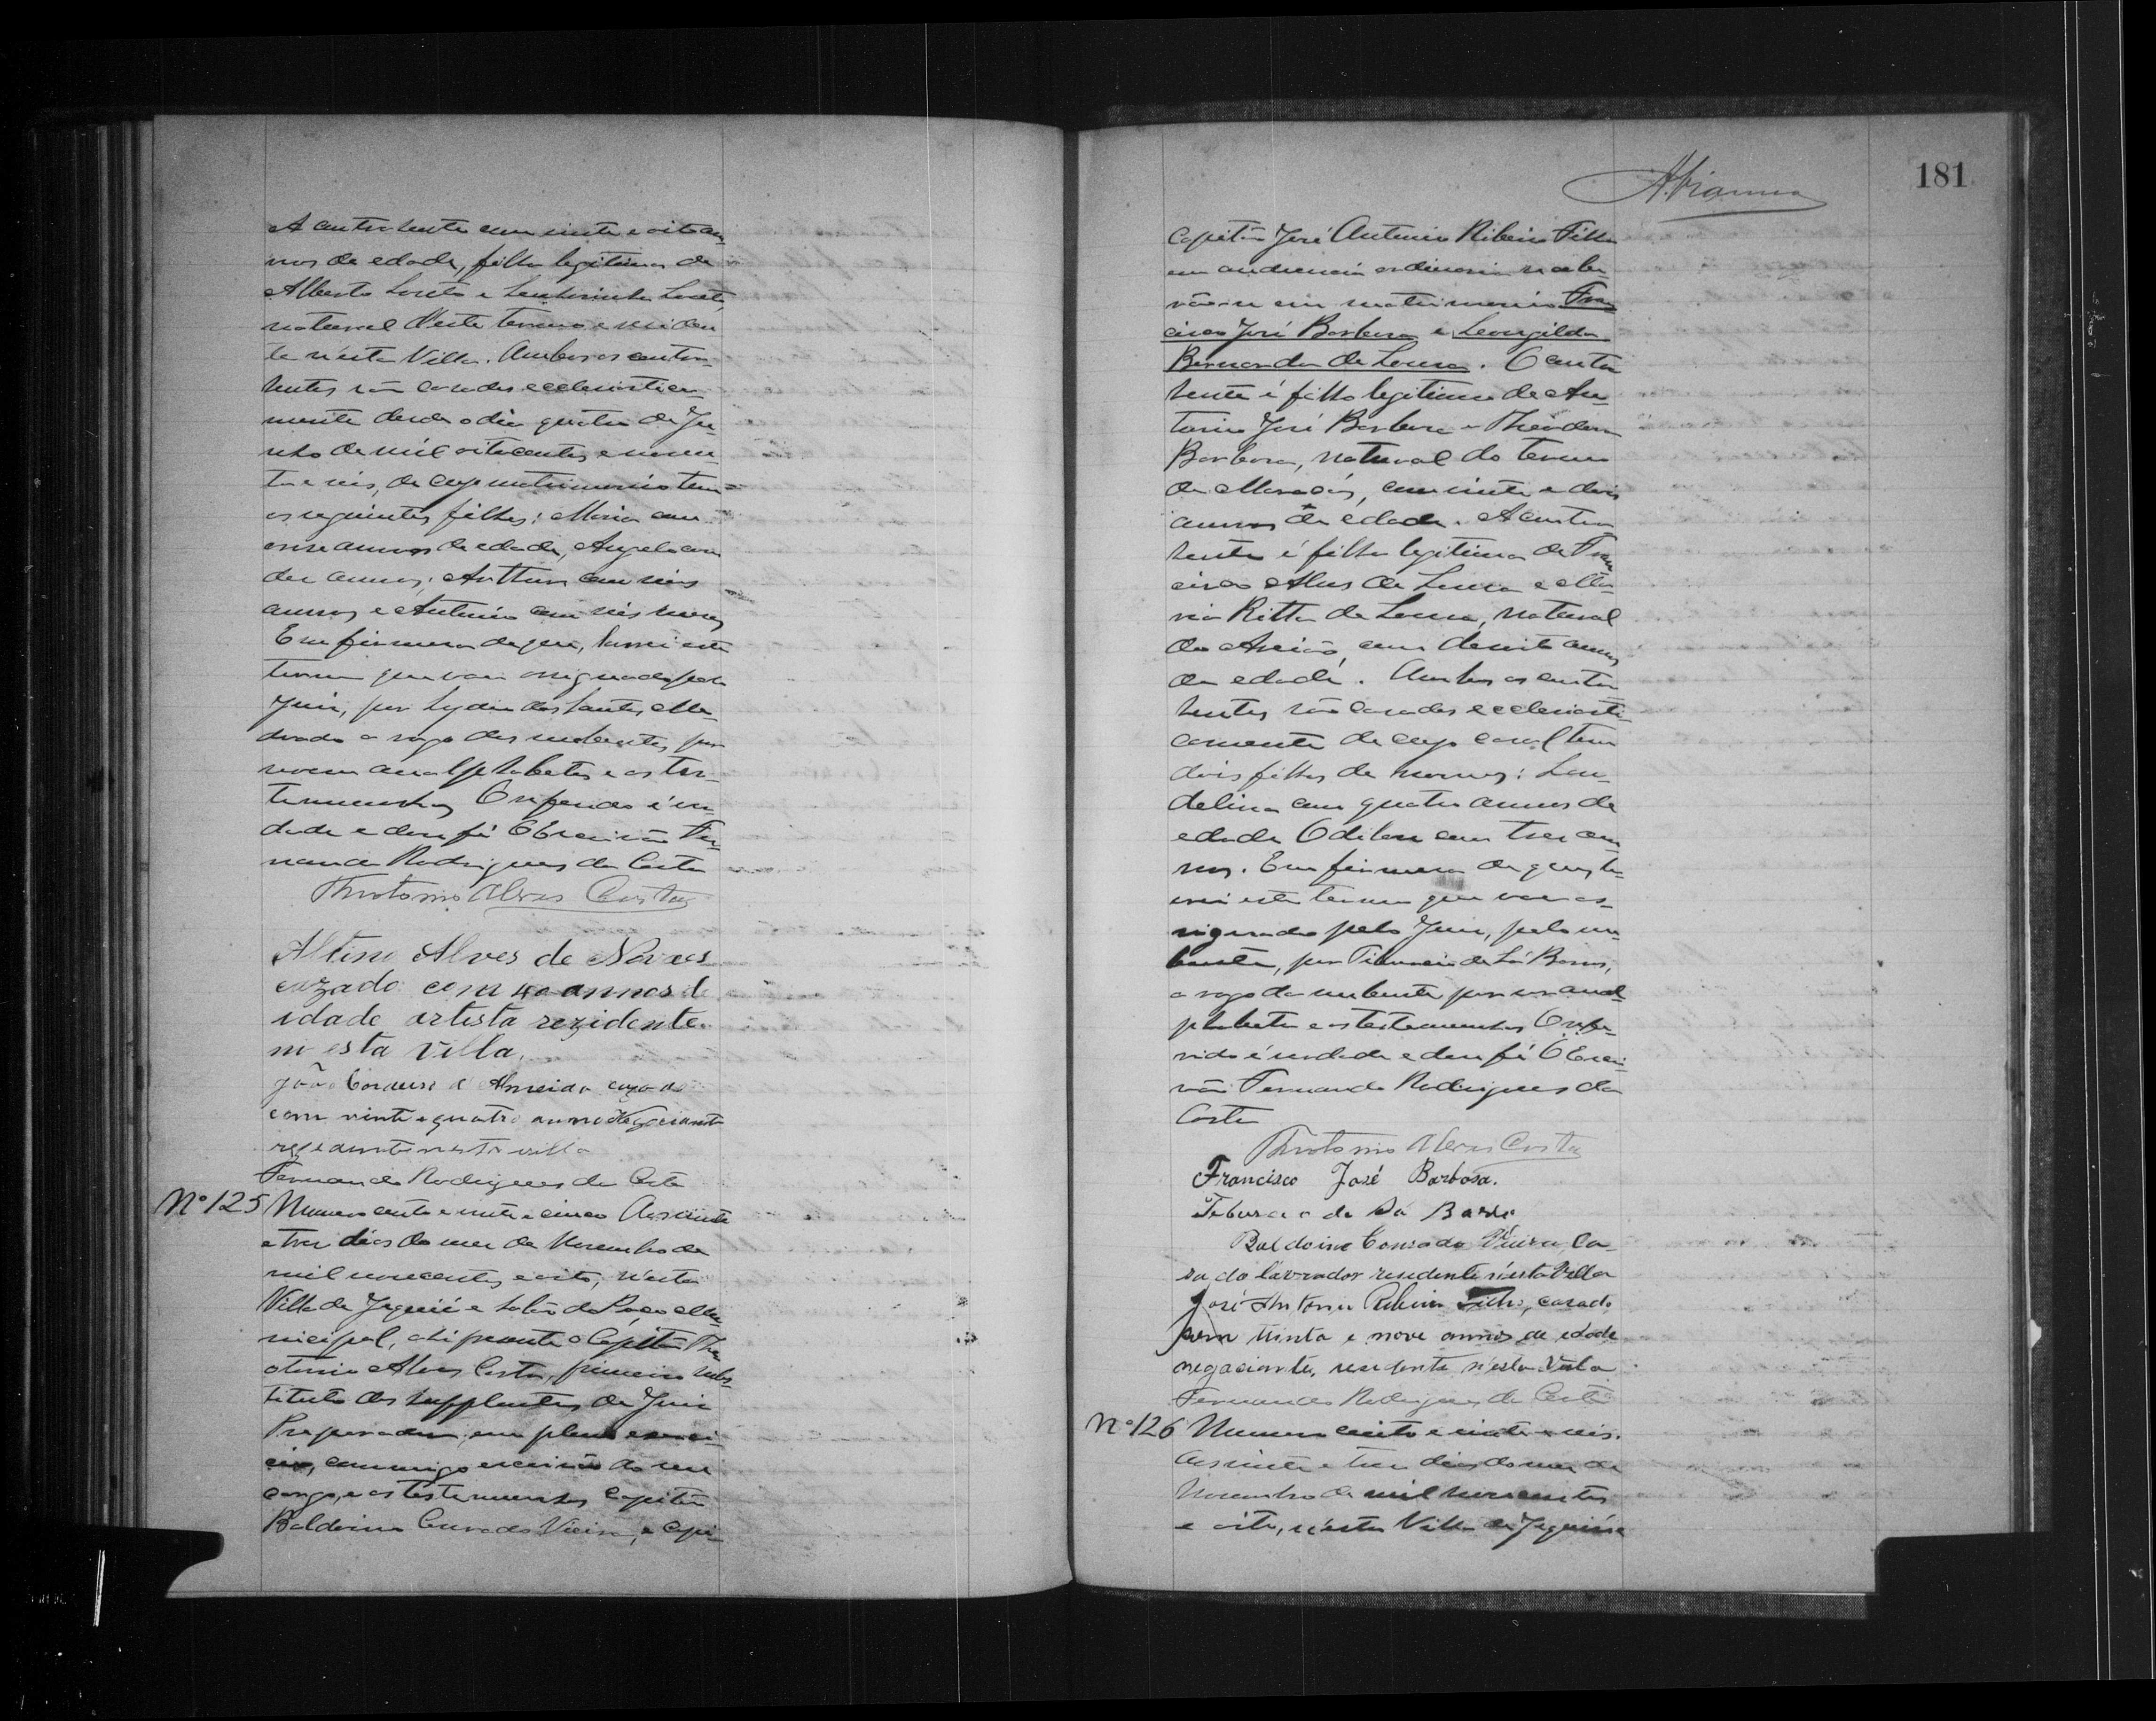 A contrahente com vinte e oito an-
nos de edade, filha legitima de
Alberto
natural d'este termo e residen
te n'esta Villa. Ambos os contra-
hentes são casados ecclesiastica-
mente desde o dia quatro de Ju-
nho de mil oitocentos e noven-
ta e seis, de cujo matrimonio tem
os seguintes filhos: Maria com
onse annos de edade, Angelo com
dez annos, Arthur com seis
annos e Antonio com seis meses
Em firmesa de que, lavrei este
termo que vai assignado pelo
Juiz, por Lydio dos Santos
a rogo dos nubentes, por
serem analphabetos e as tes-
temunhas O referido é ver-
dade e dou fé O Escrivão Fer-
nando Rodrigues da Costa
Theotonio Alves Costa
Altino Alves de Novaes
cazado com 40 annos de
idade artista rezidente
n'esta Villa.
João de Almeida cazado
com vinte e quatro annos Negociante
rezidente nesta villa
Fernando Rodrigues da Costa
Nº 125 Numero cento e vinte e cinco Aos vinte
e tres dias do mez de Novembro de
mil novecentos e oito, n'esta
Villa de Jequié e Salão do Paço Mu-
nicipal, ahi presente o Capitão The
otonio Alves Costa, primeiro subs-
tituto dos supplentes do Juiz
Preparador, em pleno exerci-
cio, commigo escrivão do seu
cargo, e as testemunhas Capitão
Baldoino Conrado Vieira, e Capi-
181
A. Vianna
Capitão José Antonio Ribeiro Filho
em audiencia ordinaria recebe-
rão-se em matrimonio Fran
cisco José Barbosa e Leovegilda
Bernarda de Souza. O contra
hente é filho legitimo de An-
tonio José Barbosa e Theodora
Barbosa, natural do termo
de Maracás, com vinte e dois
annos de edade. A contra
hente é filha legitima de Fran
cisco Alves de Souza e Ma-
ria Ritta de Souza, natural
da Areia, com desoito annos
de edade. Ambos os contra
hentes são casados ecclesiasti-
camente de cujo casal tem
dois filhos de nomes: Lau-
delina com quatro annos de
edade Odilon com tres an-
nos. Em firmesa de que, la-
vrei este termo que vai as-
signado pelo Juiz, pelo nu-
bente, por Tiburcio de Sá Barros,
a rogo da nubente por ser anal-
phabeta e as testemunhas O refe-
rido é verdade e dou fé O Escri-
vão Fernando Rodrigues da
Costa
Theotonio Alves Costa
Francisco José Barbosa.
Tiburcio de Sá Barro
Baldoino Conrado Vieira, Ca-
sado lavrador residente n'esta Villa
José Antonio Ribeiro Filho, casado
com trinta e nove annos de edade
negociante, residente n'esta Villa
Fernando Rodrigues da Costa
Nº 126 Numero cento e vinte e seis.
Aos vinte e tres dias do mez de
Novembro de mil novecentos
e oito, n'esta Villa de Jequié e